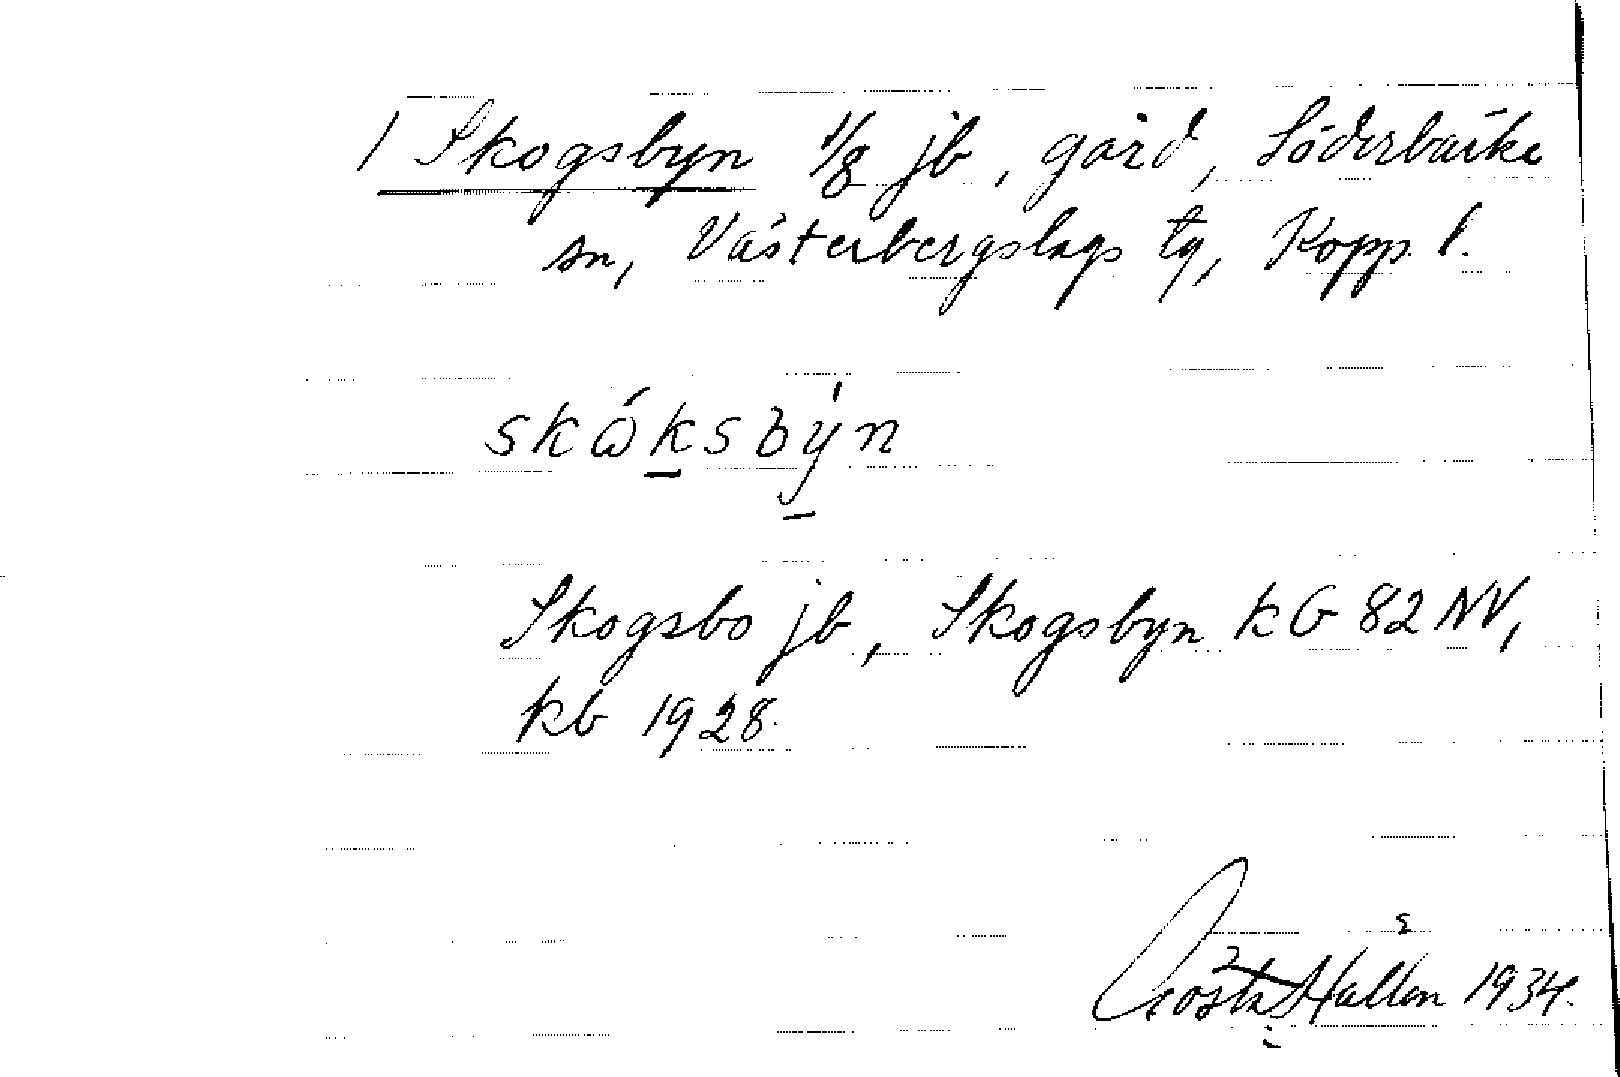 1 Skogsbyn 1/8 jb, gård, Söderbärke
sn, Västerbergslags tg, Kopp. l.
skɷ́ksbýn
Skogsbo jb, Skogsbyn kG 82 NV,
kb 1928.
Gösta Hallén 1934.